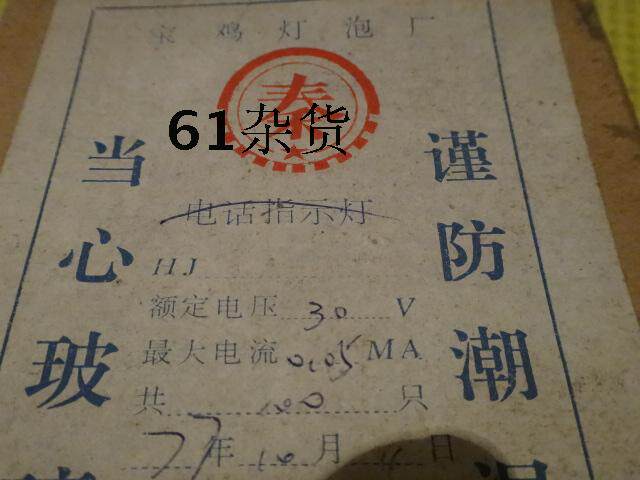 宝鸡灯泡厂
秦
61杂货
电话指示灯
HJ
额定电压 30 V
最大电流 0.05 MA
共 100 只
77年10月 日
当心玻
谨防潮